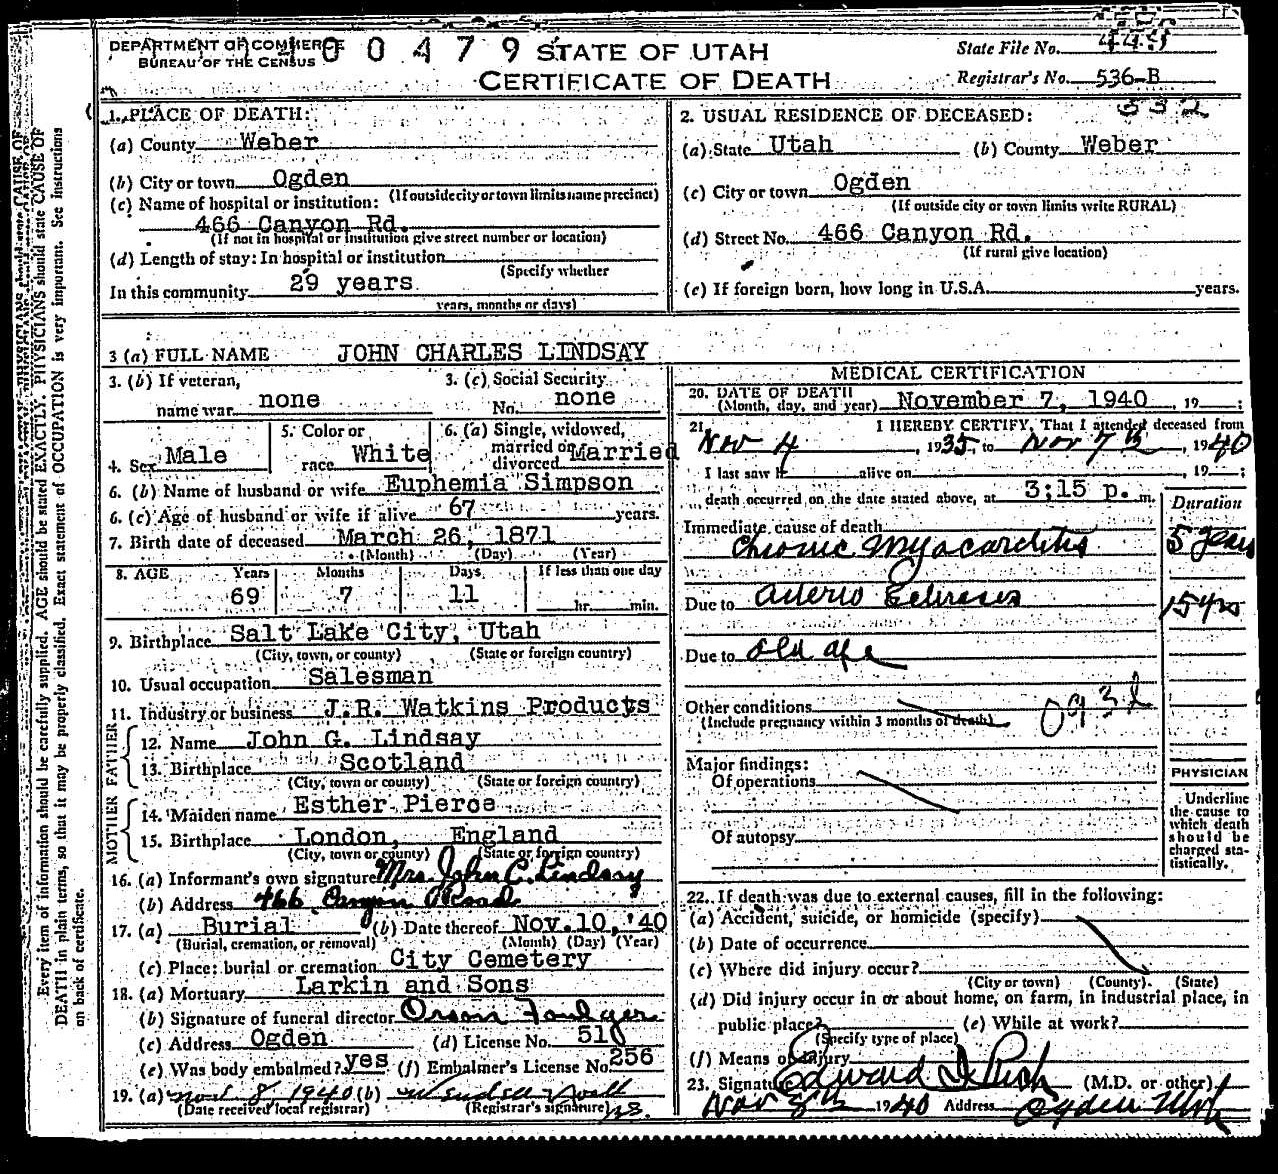 DEPARTMENT OF COMMERCE
BUREAU OF THE CENSUS
0 0 4 7 9
STATE OF UTAH
CERTIFICATE OF DEATH
State File No.
Registrar's No. 536-B
332
1. PLACE OF DEATH:
(a) County Weber
(b) City or town Ogden
(If outside city or town limits name precinct)
(c) Name of hospital or institution:
466 Canyon Rd.
(If not in hospital or institution give street number or location)
(d) Length of stay: In hospital or institution
(Specify whether
In this community 29 years
years, months or days)
2. USUAL RESIDENCE OF DECEASED:
(a) State Utah (b) County Weber
(c) City or town Ogden
(If outside city or town limits write RURAL)
(d) Street No. 466 Canyon Rd.
(If rural give location)
(e) If foreign born, how long in U.S.A. years.
3 (a) FULL NAME JOHN CHARLES LINDSAY
3. (b) If veteran,
name war none
3. (c) Social Security
No. none
4. Sex Male
5. Color or
race White
6. (a) Single, widowed,
married or
divorced Married
6. (b) Name of husband or wife Euphemia Simpson
6. (c) Age of husband or wife if alive 67 years.
7. Birth date of deceased March 26, 1871
(Month) (Day) (Year)
8. AGE Years Months Days If less than one day
69 7 11 hr. min.
9. Birthplace Salt Lake City, Utah
(City, town, or county) (State or foreign country)
10. Usual occupation Salesman
11. Industry or business J.R. Watkins Products
FATHER
12. Name John G. Lindsay
13. Birthplace Scotland
(City, town or county) (State or foreign country)
MOTHER
14. Maiden name Esther Pierce
15. Birthplace London, England
(City, town or county) (State or foreign country)
16. (a) Informant's own signature Mrs. John C. Lindsay
(b) Address 466 Canyon Road
17. (a) Burial (b) Date thereof Nov. 10, '40
(Burial, cremation, or removal) (Month) (Day) (Year)
(c) Place: burial or cremation City Cemetery
18. (a) Mortuary Larkin and Sons
(b) Signature of funeral director Orson Foulger
(c) Address Ogden (d) License No. 510
(e) Was body embalmed? yes (f) Embalmer's License No. 256
19. (a) Nov 8, 1940 (b)
(Date received local registrar) (Registrar's signature)
MEDICAL CERTIFICATION
20. DATE OF DEATH
(Month, day, and year) November 7, 1940, 19 ;
21. I HEREBY CERTIFY, That I attended deceased from
Nov 4, 1935, to Nov 7th, 1940
I last saw h alive on , 19 ;
death occurred on the date stated above, at 3:15 p. m.
Duration
Immediate cause of death
Chronic Myocarditis 5 years
Due to Arterio Sclerosis 15 yrs
Due to old age
Other conditions
(Include pregnancy within 3 months of death)
Major findings:
Of operations
Of autopsy
PHYSICIAN
Underline
the cause to
which death
should be
charged sta-
tistically.
22. If death was due to external causes, fill in the following:
(a) Accident, suicide, or homicide (specify)
(b) Date of occurrence
(c) Where did injury occur?
(City or town) (County) (State)
(d) Did injury occur in or about home, on farm, in industrial place, in
public place? (e) While at work?
(Specify type of place)
(f) Means of injury
23. Signature Edward I Rich (M.D. or other)
Nov 8th 1940 Address Ogden Utah
Every item of information should be carefully supplied. AGE should be stated EXACTLY. PHYSICIANS should state CAUSE OF
DEATH in plain terms, so that it may be properly classified. Exact statement of OCCUPATION is very important. See instructions
on back of certificate.